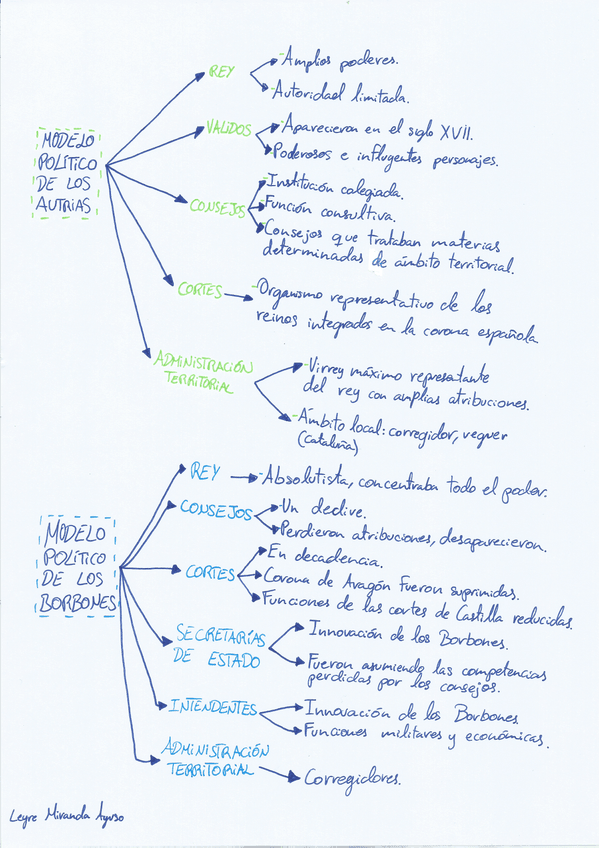 MODELO
POLÍTICO
DE LOS
AUTRIAS
REY
-Amplios poderes.
-Autoridad limitada.
VALIDOS
-Aparecieron en el siglo XVII.
-Poderosos e influyentes personajes.
CONSEJOS
-Institución colegiada.
-Función consultiva.
-Consejos que trataban materias
determinadas de ámbito territorial.
CORTES
-Organismo representativo de los
reinos integrados en la corona española
ADMINISTRACIÓN
TERRITORIAL
-Virrey máximo representante
del rey con amplias atribuciones.
-Ámbito local: corregidor, veguer
(Cataluña)
MODELO
POLÍTICO
DE LOS
BORBONES
REY
-Absolutista, concentraba todo el poder.
CONSEJOS
-Un declive.
-Perdieron atribuciones, desaparecieron.
CORTES
-En decadencia.
-Corona de Aragón fueron suprimidas.
-Funciones de las cortes de Castilla reducidas.
SECRETARÍAS
DE ESTADO
-Innovación de los Borbones.
-Fueron asumiendo las competencias
perdidas por los consejos.
INTENDENTES
-Innovación de los Borbones
-Funciones militares y económicas.
ADMINISTRACIÓN
TERRITORIAL
-Corregidores.
Leyre Miranda Ayuso